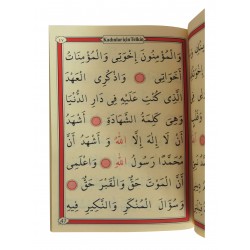 Kadınlar için Telkin
وَالْمُؤْمِنُونَ إِخْوَتِي وَالْمُؤْمِنَاتُ
أَخَوَاتِي وَاذْكُرِي الْعَهْدَ
الَّذِي كُتِبَ عَلَيْهِ فِي دَارِ الدُّنْيَا
وَهِيَ كَلِمَةُ الشَّهَادَةِ أَشْهَدُ
أَنْ لَا إِلٰهَ إِلَّا اللهُ وَ أَشْهَدُ أَنَّ
مُحَمَّدًا رَسُولُ اللهِ وَاعْلَمِي
أَنَّ الْمَوْتَ حَقٌّ وَالْقَبْرَ حَقٌّ
وَسُؤَالَ الْمُنْكَرِ وَالنَّكِيرِ فِيهِ